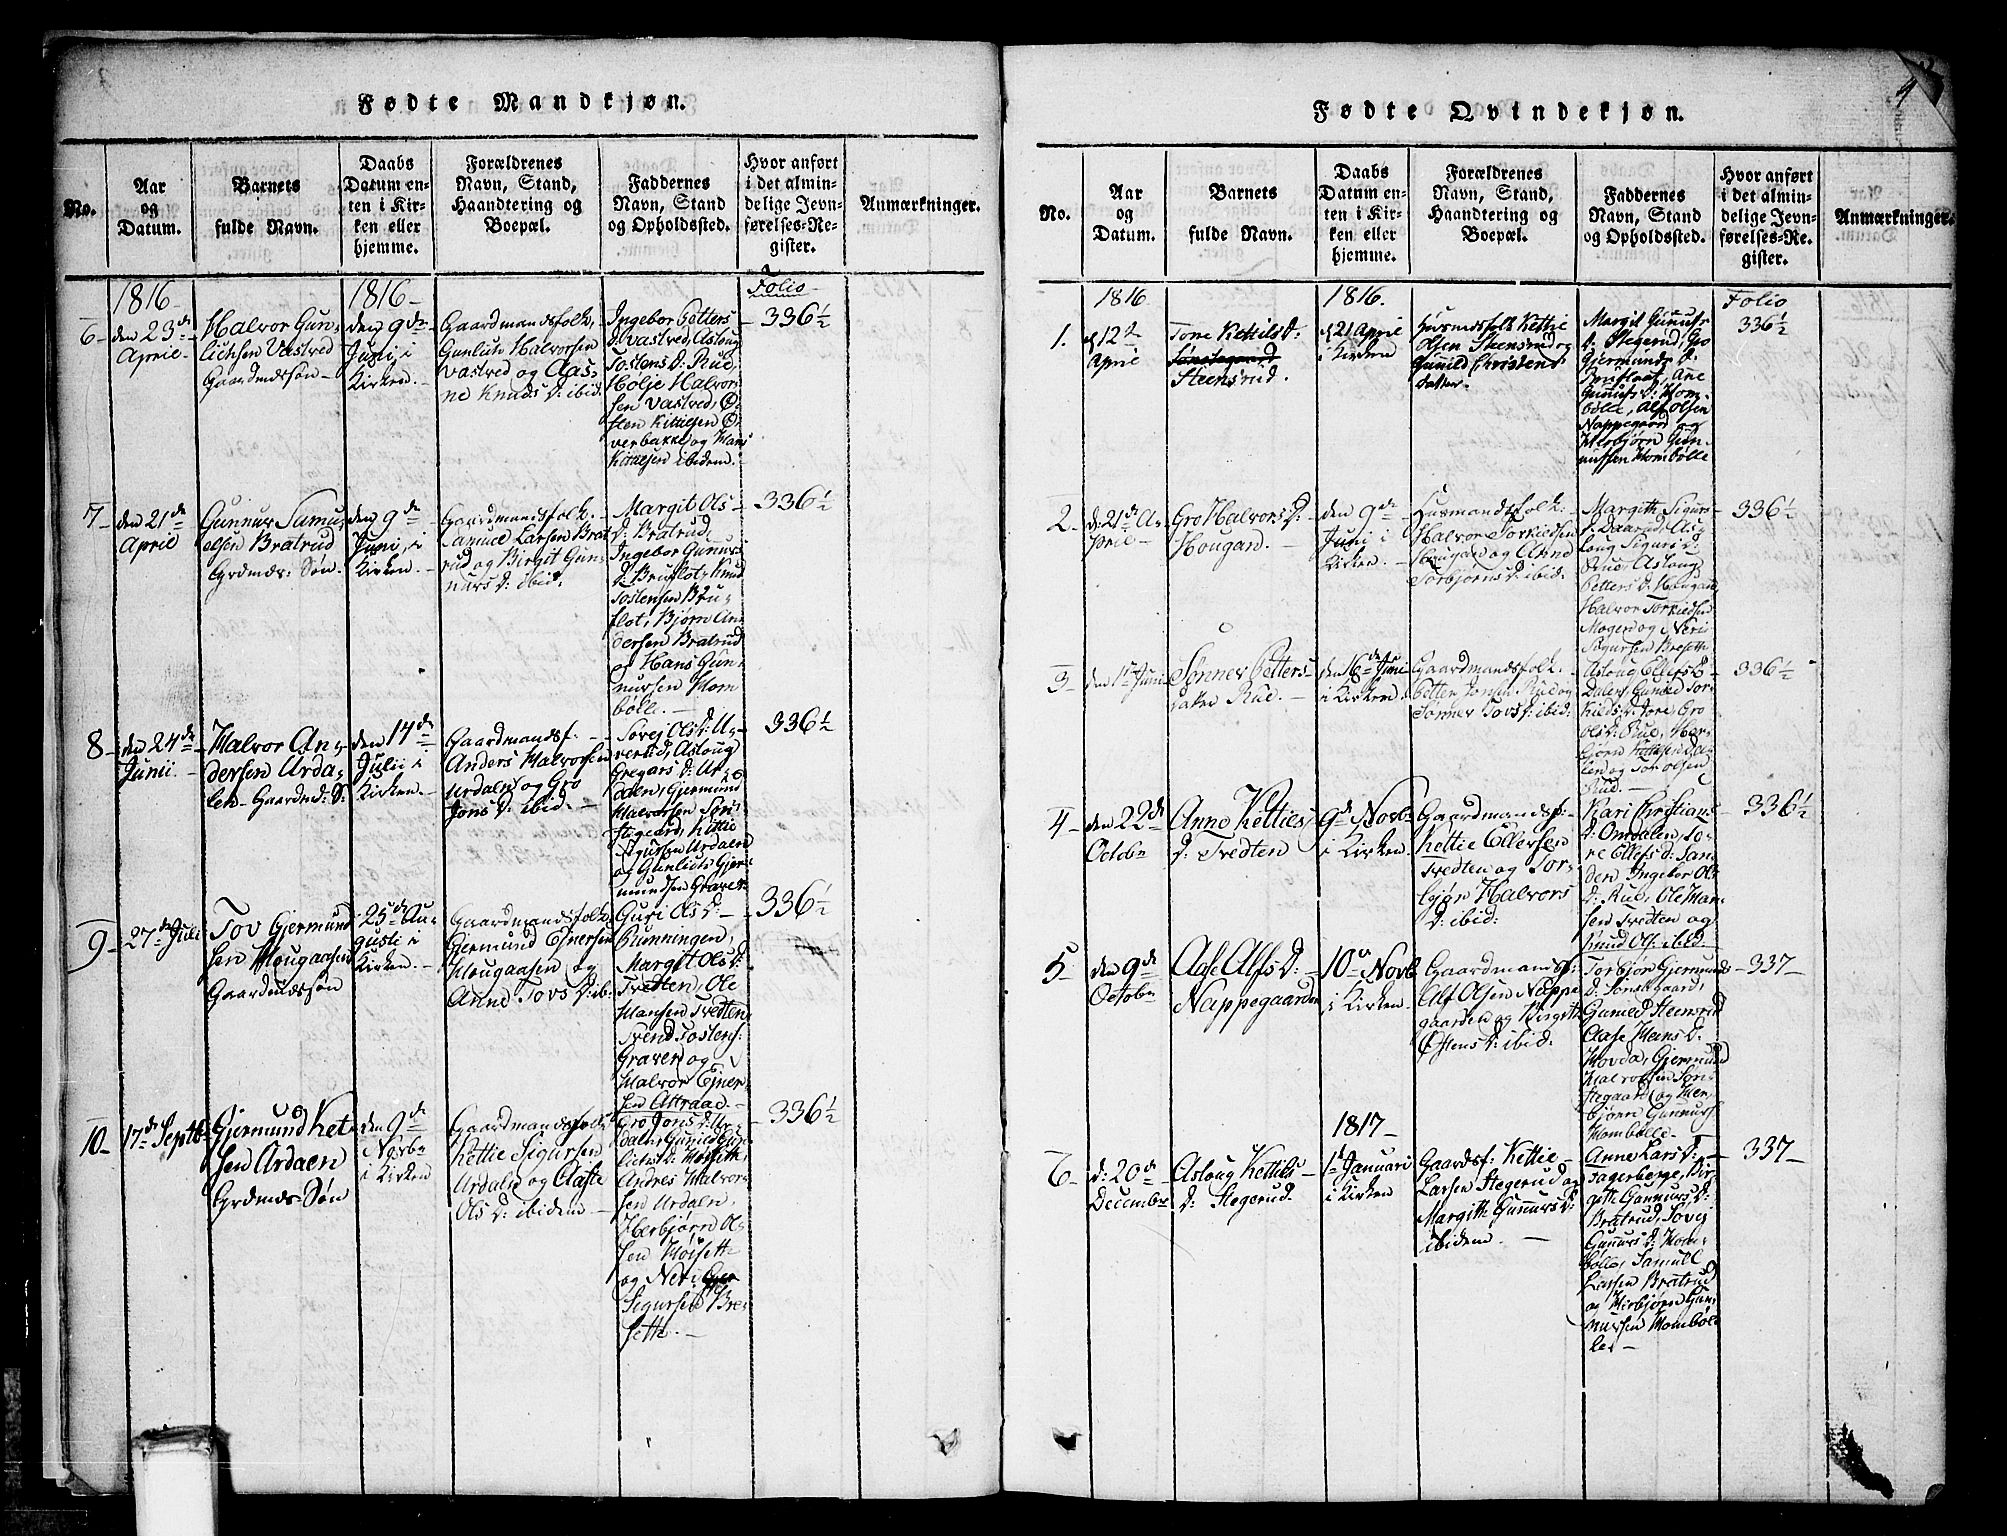 Fødte Mandkjøn.
No.
Aar
og
Datum.
Barnets
fulde Navn.
Daabs
Datum en-
ten i Kir-
ken eller
hjemme.
Forældrenes
Navn, Stand,
Haandtering og
Boepæl.
Faddernes
Navn, Stand
og Opholdssted.
Hvor anført
i det almin-
delige Jevn-
førelses-Re-
gister.
Anmærkninger.
1816
1816
Folio
6
den 23de
April
Halvor Gun-
lichsen Vastved
Gaardmdssøn
den 9de
Juni, i
Kirken.
Gaardmandsfolk,
Gunlich Halvorsen
Vastved og Aas-
ne Knuds D: ibid.
Ingebor Petters
d: Vastved, Asloug
Tostens D: Rue,
Hølje Halvor-
sen Vastved, Ø-
sten Kittilsen Ø-
verbakke og Hans
Kittilsen ibidem.
336½
7
den 21de
April
Gunnur Samu-
elsen Bratrud
Grdmds: Søn.
den 9de
Juni, i
Kirken.
Gaardmandsfolk.
Samuel Larsen Brat-
rud og Birgit Gun-
nurs D: ibid:
Margit Ols
D: Bratrud
Ingebor Gunurs
D: Bruflot, Knud
Tostensen Bru-
flot, Bjørn An-
dersen Bratrud
og Hans Gun-
nursen Hom-
bølle.
336½
8
den 24de
Junii
Halvor An-
dersen Urda-
len Gaardmd: S:
den 14de
Julii i
Kirken.
Gaardmandsf:
Anders Halvorsen
Urdalen og Gro
Jons D: ibid.
Søvej Ols D: U-
verstid, Asloug
Gregars D: Ur-
dalen, Gjermund
Halvorsen Søn-
stegaard, Kittil
Sigursen Urdalen
og Gunlich Gjer-
mundsen Graver
336½
9
27de Juli
Tov Gjermund-
sen Hougaasen
Gaardmdssøn
25de Au-
gusti i
Kirken.
Gaardmandsfolk,
Gjermund Ejnersen
Hougaasen og
Anne Tovs D: ib:
Guri Ols D:
Runningen,
Margit Ols D:
Tvedten, Ole
Hansen Tvedten,
Svend Tostens:
Graver og
Halvor Ejner-
sen Attraae.
336½
10
17de Septb
Gjermund Ket-
sen Urdalen
Grdmds Søn
den 9de
Novbr
i Kirken
Gaardmandsfolk
Kettil Sigursen
Urdalen og Aase
Ols D: ibidem
Gro Jons D: Ur-
dalen, Gunild Gun-
lichs D: Høisetth,
Andres Halvor-
sen Urdalen,
Herbjørn Ol-
sen Høisetth
og Neri
Sigursen Bre-
setth.
336½
Fødte Qvindekjøn.
No.
Aar
og
Datum.
Barnets
fulde Navn.
Daabs
Datum en-
ten i Kir-
ken eller
hjemme.
Forældrenes
Navn, Stand,
Haandtering og
Boepæl.
Faddernes
Navn, Stand
og Opholdssted.
Hvor anført
i det almin-
delige Jevn-
førelses-Re-
gister.
Anmærkninger.
1816
1816.
Folio
1.
d 12de
April
Tone Kettils D:
Steensrud.
d 21 April
i Kirken
Huusmdsfolk Kettil
Olsen Steensrud og
Gunild Christens
datter.
Margit Gunurs
D: Stegerud, Gro
Gjermunds D:
Bruflaat, Ane
Gunurs D: Hom-
bølle, Alf Olsen
Nappegaard og
Herbjørn Gun-
nursen Hombølle
336½
2
d: 21de A-
pril
Gro Halvors D:
Hougan.
den 9de
Juni i
Kirken.
Husmandsfolk:
Halvor Torkildsen
Hougan og Anne
Torbjørns D: ibid:
Margith Sigurs
D: Daarud, As-
loug Sigurs D:
Rue, Asloug
Petters D: Hougan,
Halvor Torkildsen
Mogen og Neri
Sigursen Bresetth
336½
3
den 1ste Juni
Sønner Petters
datter Rue.
den 16de Juni
i Kirken.
Gaardmandsfolk.
Petter Jonsen Rue og
Sønner Tovs D: ibid:
Asloug Ellefs D:
Dalen, Gunild Tor-
kilds D: Jore, Gro
Ols D: Rue, Her-
bjørn Da-
len og Tor Olsen
Rud.
336½
4
den 22de
Octobr
Anne Kettils
D: Tvedten
9de Novb
i Kirken.
Gaardmandsf:
Kettil Ellevsen
Tvedten og Tor-
bjør Halvors
D: ibid:
Kari Christians
D: Omdalen, To-
re Ellefs D: San-
den, Ingebor Ols
D: Rue, Ole Han-
sen Tvedten og
Knud Ols: ibid.
336½
5
den 9de
Octobr
Aase Alfs D:
Nappegaarden
10de Novb
i Kirken
Gaardmandsf:
Alf Olsen Nappe-
gaarden og Birgith
Østens D: ibid:
Torbjør Gjermunds
D: Sønstegaard,
Gunild Steensrud
Aase Hans D:
Hovda, Gjermund
Halvorsen Søn-
stegaard og Her-
bjørn Gunnurs:
Hombølle.
337
1817
6
d: 20de
December
Asloug Kettils
D: Stegerud.
1ste Januari
i Kirken
Gaardsf: Kettil
Larsen Stegerud og
Margith Gunurs D:
ibidem.
Anne Lars D:
Fagerberge, Bir-
gett Gunnurs D:
Bratrud, Søvej
Gunurs D: Hom-
bølle, Samuel
Larsen Bratrud
og Herbjørn Gun-
nursen Hombøl-
le.
337